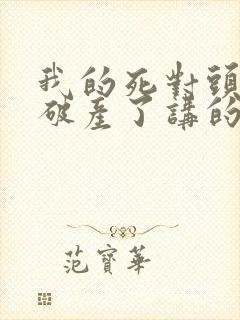 我的死對頭
破產了講的
范寶華